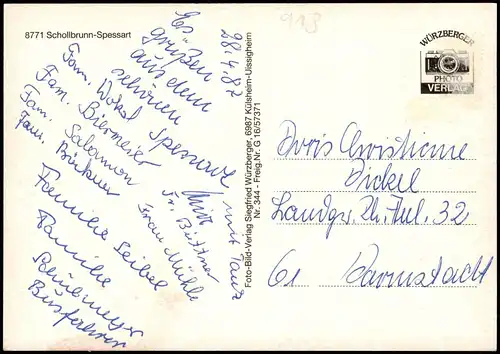 8771 Schollbrunn-Spessart
913
28.4.82
Es
grüßen
aus dem
schönen
Spessart
mit
Fam. Wokal
Fam. Biermeier
Fam. Salomon
Fam. Bückner
Fr. Büttner
Frau Mühle
Familie Seibel
Familie
Busfahrer
Foto-Bild-Verlag Siegfried Würzberger, 6987 Külsheim-Uissigheim
Nr. 344 - Freig.-Nr. G 16/57371
WÜRZBERGER
PHOTO
VERLAG
Doris Christiane
Dickel
Landgr. Ph. Anl. 32
61 Darmstadt